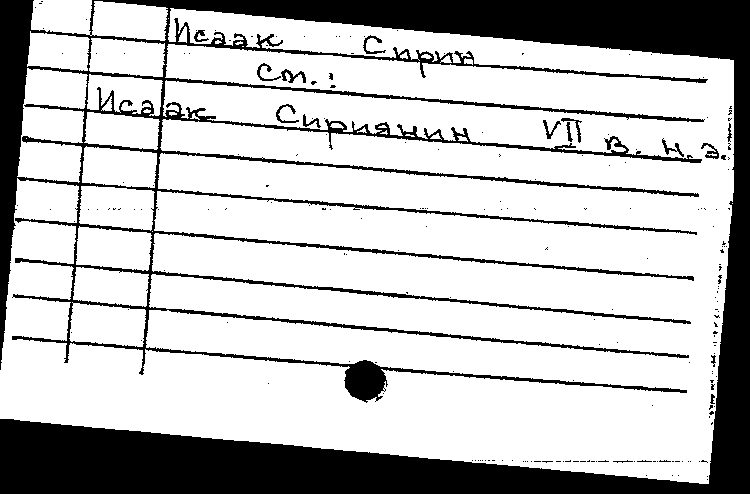 Исаак Сирин
см.:
Исаак Сириянин VII в. н.э.